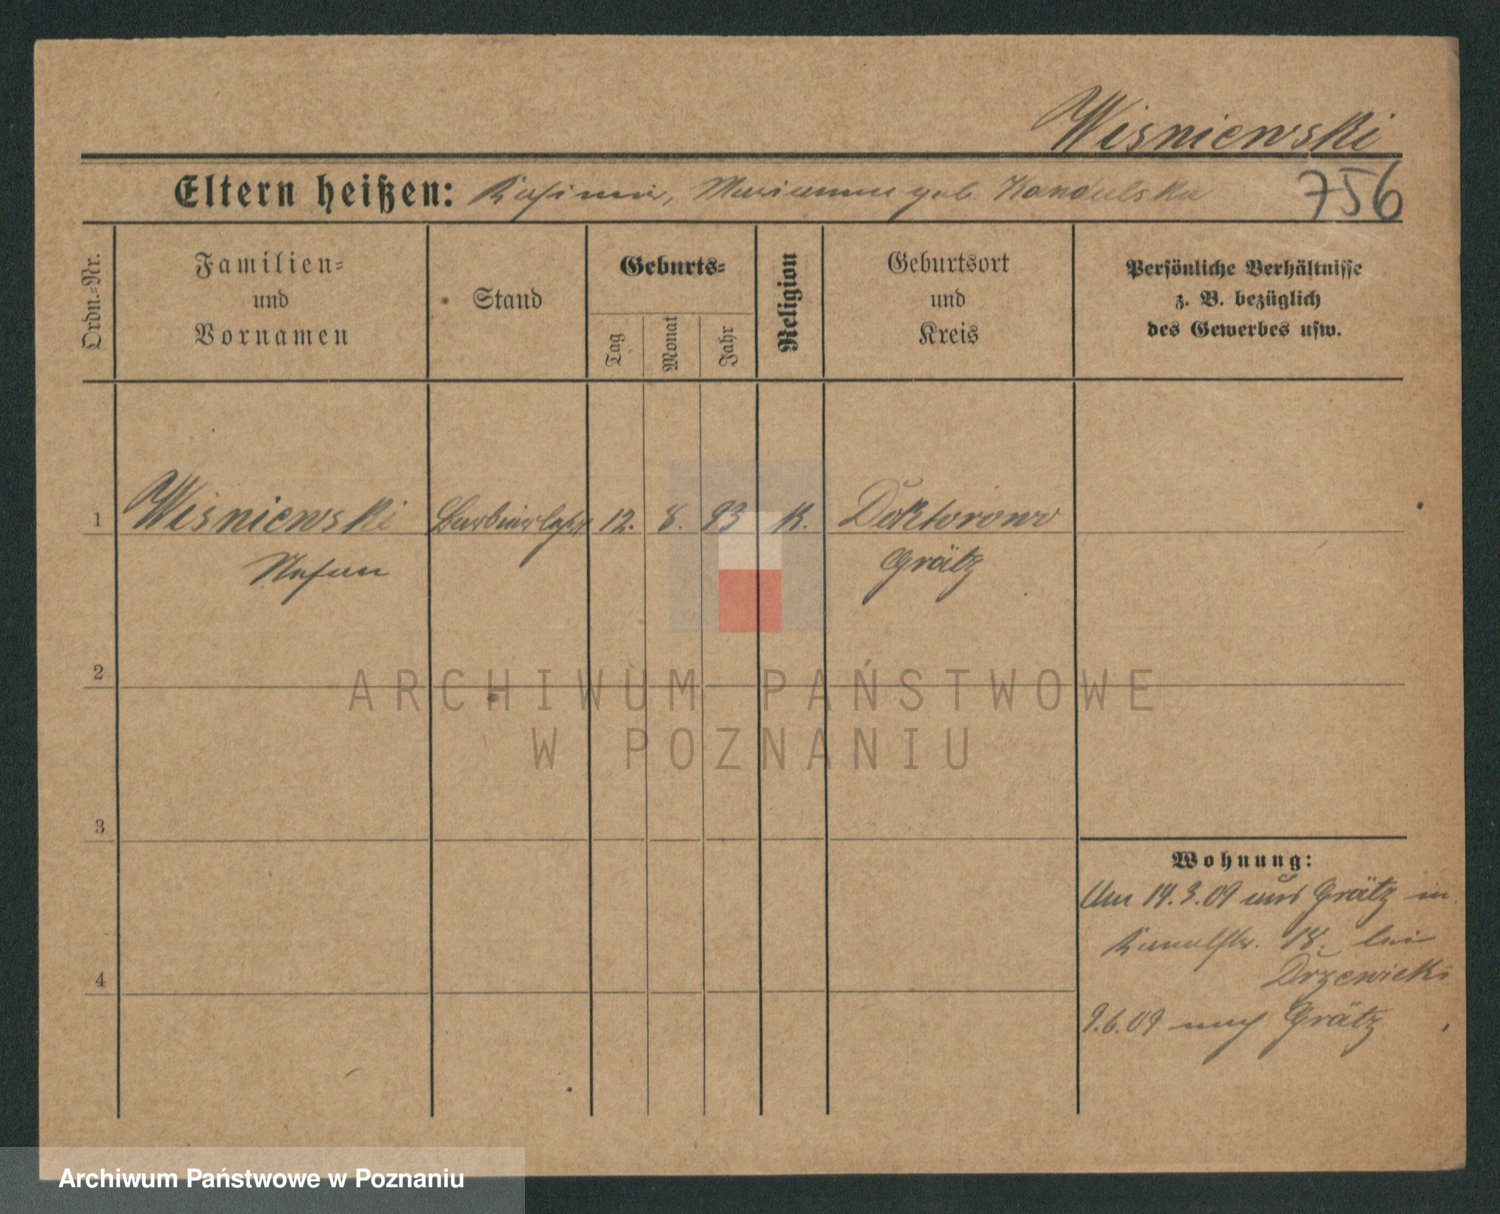 Wisniewski
Eltern heißen: Kasimir, Marianna geb. Kandulska
756
Ordn.-Nr.
Familien-
und
Vornamen
Stand
Geburts-
Tag
Monat
Jahr
Religion
Geburtsort
und
Kreis
Persönliche Verhältnisse
z. B. bezüglich
des Gewerbes usw.
1 Wisniewski 12. 8. 93 K. Doktorowo
Stefan Grätz
2
3
4
Wohnung:
Um 14.3.09 aus Grätz in
Kanalstr. 18. bei
Drzewiecki
9.6.09 nach Grätz
ARCHIWUM PAŃSTWOWE
W POZNANIU
Archiwum Państwowe w Poznaniu